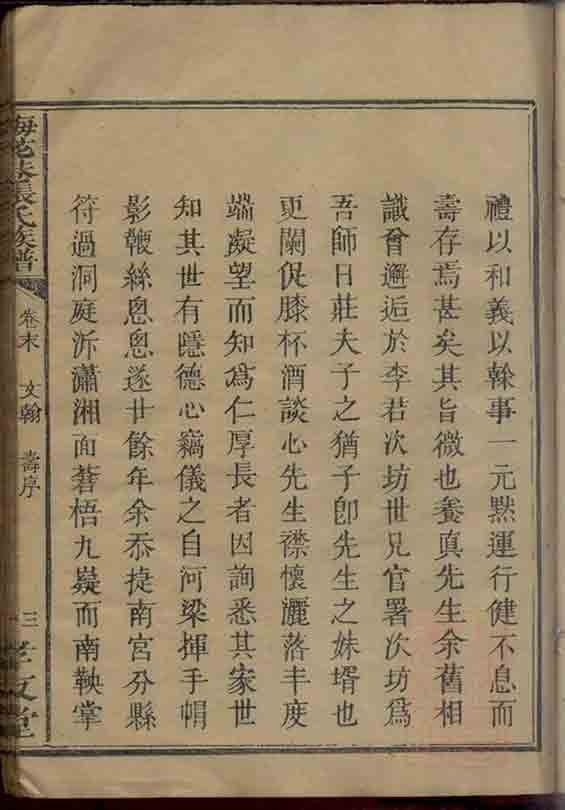 禮以和義以榦事一元黙運行健不息而
壽存焉甚矣其旨微也養真先生余舊相
識曾邂逅於李君次坊世兄官署次坊爲
吾師日莊夫子之猶子卽先生之妹壻也
更闌促膝杯酒談心先生襟懷灑落丰度
端凝望而知爲仁厚長者因詢悉其家世
知其世有隱德心竊儀之自河梁揮手帽
影鞭絲悤悤遂廿餘年余忝捷南宮分縣
符過洞庭泝瀟湘面蒼梧九嶷而南鞅掌
張氏族譜
卷末 文翰 壽序
三